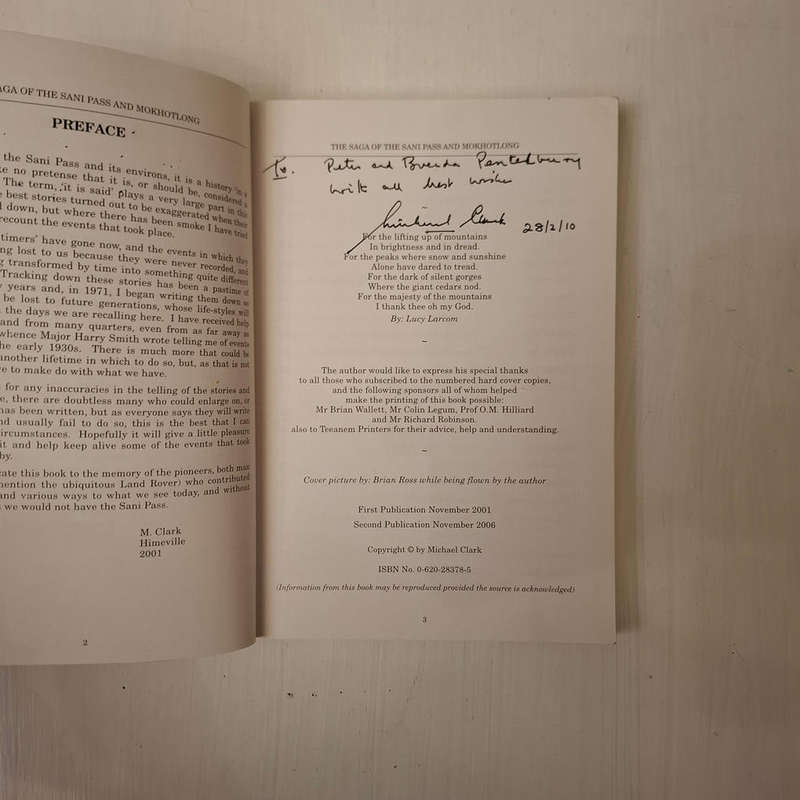 SAGA OF THE SANI PASS AND MOKHOTLONG
PREFACE
the Sani Pass and its environs, it is a history 'in a
no pretense that it is, or should be, considered a
The term, 'it is said' plays a very large part in this
best stories turned out to be exaggerated when their
down, but where there has been smoke I have tried
recount the events that took place.
timers' have gone now, and the events in which they
lost to us because they were never recorded, and
transformed by time into something quite different
Tracking down these stories has been a pastime of
years and, in 1971, I began writing them down so
be lost to future generations, whose life-styles will
the days we are recalling here. I have received help
and from many quarters, even from as far away as
whence Major Harry Smith wrote telling me of events
early 1930s. There is much more that could be
another lifetime in which to do so, but, as that is not
to make do with what we have.
for any inaccuracies in the telling of the stories and
there are doubtless many who could enlarge on, or
has been written, but as everyone says they will write
usually fail to do so, this is the best that I can
circumstances. Hopefully it will give a little pleasure
it and help keep alive some of the events that took
by.
this book to the memory of the pioneers, both man
mention the ubiquitous Land Rover) who contributed
and various ways to what we see today, and without
we would not have the Sani Pass.
M. Clark
Himeville
2001
2
THE SAGA OF THE SANI PASS AND MOKHOTLONG
To. Peter and Brenda
with all best wishes
Michael Clark
28/2/10
For the lifting up of mountains
In brightness and in dread.
For the peaks where snow and sunshine
Alone have dared to tread.
For the dark of silent gorges
Where the giant cedars nod.
For the majesty of the mountains
I thank thee oh my God.
By: Lucy Larcom
~
The author would like to express his special thanks
to all those who subscribed to the numbered hard cover copies,
and the following sponsors all of whom helped
make the printing of this book possible:
Mr Brian Wallett, Mr Colin Legum, Prof O.M. Hilliard
and Mr Richard Robinson.
also to Teeanem Printers for their advice, help and understanding.
~
Cover picture by: Brian Ross while being flown by the author
First Publication November 2001
Second Publication November 2006
Copyright © by Michael Clark
ISBN No. 0-620-28378-5
(Information from this book may be reproduced provided the source is acknowledged)
3